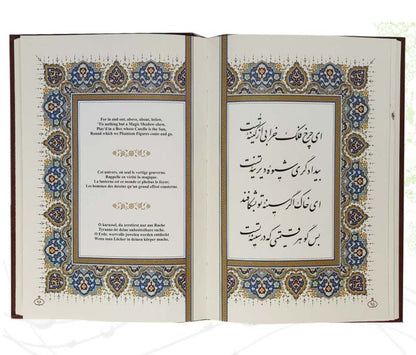 For in and out, above, about, below,
'Tis nothing but a Magic Shadow-show,
Play'd in a Box where Candle is the Sun,
Round which we Phantom Figures come and go.
Cet univers, où seul le vertige gouverne.
Rappelle en vérité la magique.
La lanterne est ce monde et phébus le foyer;
Les hommes des dessins qu'un grand effroi consterne.
O karussel, du zerstörst nur aus Rache
Tyranne ist deine unbestrittene sache.
O Erde, wertvolle juwelen werden entblösst
Wenn man Löcher in deinem körper mache.
ای چرخ فلک خرابی از کینه تست
بیدادگری شیوه دیرینه تست
ای خاک اگر سینه تو بشکافند
بس گوهر قیمتی که در سینه تست